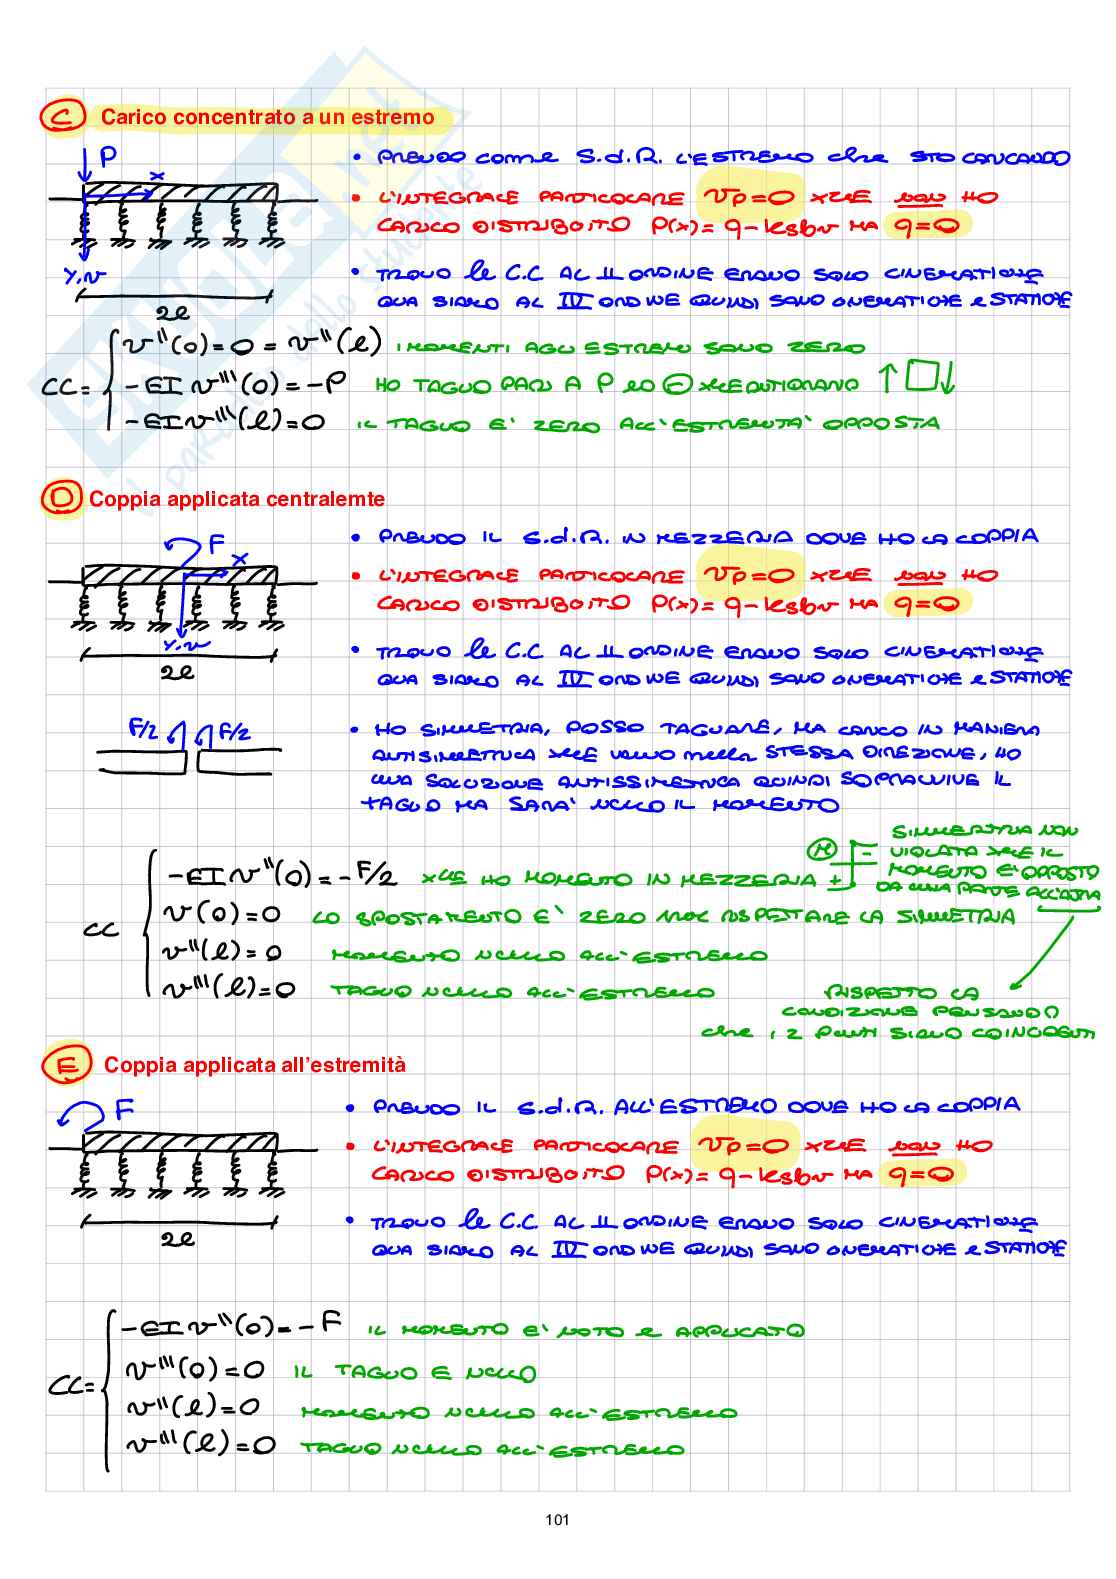 C Carico concentrato a un estremo
P
x
y,v
2l
• PRENDO come S.d.R. L'ESTREMO che STO CARICANDO
• L'INTEGRALE PARTICOLARE Vp=0 XCHE NON HO
CARICO DISTRIBUITO P(x)= q-ksbv MA q=0
• TROVO le C.C AL II ORDINE ERANO SOLO CINEMATICHE
QUA SIAMO AL IV ORDINE QUINDI SONO CINEMATICHE e STATICHE
CC=
v''(0)=0=v''(l) I MOMENTI AGLI ESTREMI SONO ZERO
-EI v'''(0)=-P HO TAGLIO PARI A P ED ⊖ XCHE ANTIORARIO
-EI v'''(l)=0 IL TAGLIO E' ZERO ALL'ESTREMITA' OPPOSTA
D Coppia applicata centralemte
F
x
y,v
2l
• PRENDO IL S.d.R. IN MEZZERIA DOVE HO LA COPPIA
• L'INTEGRALE PARTICOLARE Vp=0 XCHE NON HO
CARICO DISTRIBUITO P(x)= q-ksbv MA q=0
• TROVO le C.C AL II ORDINE ERANO SOLO CINEMATICHE
QUA SIAMO AL IV ORDINE QUINDI SONO CINEMATICHE e STATICHE
F/2 F/2
• HO SIMMETRIA, POSSO TAGLIARE, MA CARICO IN MANIERA
ANTISIMMETRICA XCHE VANNO nella STESSA DIREZIONE, HO
UNA SOLUZIONE ANTISSIMETRICA QUINDI SOPRAVVIVE IL
TAGLIO MA SARA' NULLO IL MOMENTO
CC
-EI v''(0)=-F/2 XCHE HO MOMENTO IN MEZZERIA
M
+ -
SIMMETRIA NON
VIOLATA XCHE IL
MOMENTO E' OPPOSTO
DA UNA PARTE ALL'ALTRA
v(0)=0 LO SPOSTAMENTO E' ZERO RISPETTARE LA SIMMETRIA
v''(l)=0 MOMENTO NULLO ALL'ESTREMO
v'''(l)=0 TAGLIO NULLO ALL'ESTREMO
RISPETTO LA
CONDIZIONE PENSANDO
che i 2 PUNTI SIANO COINCIDENTI
E Coppia applicata all'estremità
F
2l
• PRENDO IL S.d.R. ALL'ESTREMO DOVE HO LA COPPIA
• L'INTEGRALE PARTICOLARE Vp=0 XCHE NON HO
CARICO DISTRIBUITO P(x)= q-ksbv MA q=0
• TROVO le C.C AL II ORDINE ERANO SOLO CINEMATICHE
QUA SIAMO AL IV ORDINE QUINDI SONO CINEMATICHE e STATICHE
CC=
-EI v''(0)=-F IL MOMENTO E' NOTO e APPLICATO
v'''(0)=0 IL TAGLIO E NULLO
v''(l)=0 MOMENTO NULLO ALL'ESTREMO
v'''(l)=0 TAGLIO NULLO ALL'ESTREMO
101